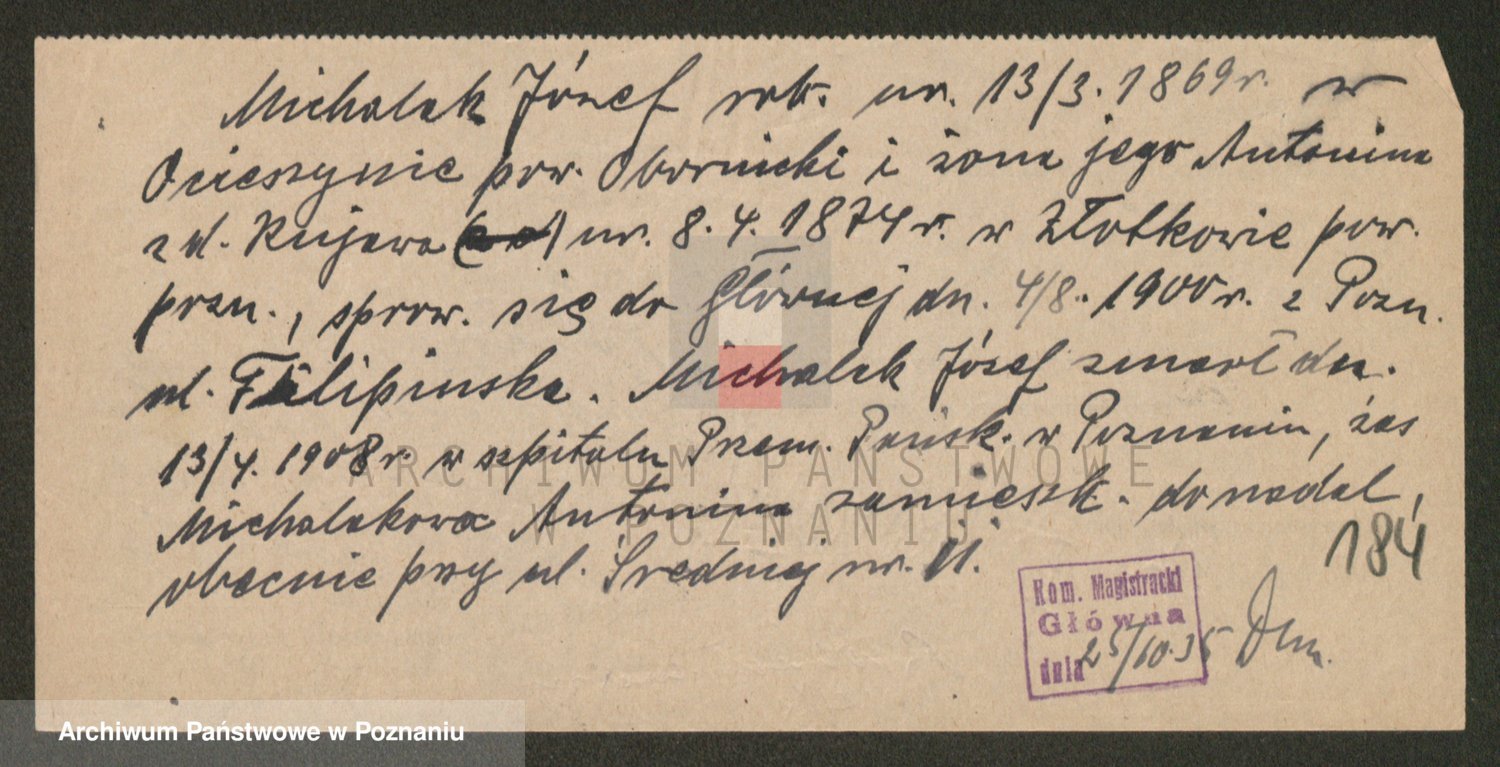 Michalak Józef rob. ur. 13/3. 1869 r. w
Ocieszynie pow. Obornicki i żona jego Antonina
z d. Kujawa ur. 8. 4. 1874 r. w Złotkowie pow.
pozn., sprow. się do Głównej dn. 4/8. 1900 r. z Pozn.
ul. Filipińska. Michalak Józef zmarł dn.
13/4. 1908 r. w szpitalu Przem. Pańsk. w Poznaniu, zaś
Michalakowa Antonina zamieszk. do nadal,
obecnie przy ul. Średniej nr. 11.
184
Kom. Magistracki
Główna
dnia 25/10.35
ARCHIWUM PAŃSTWOWE
W POZNANIU
Archiwum Państwowe w Poznaniu